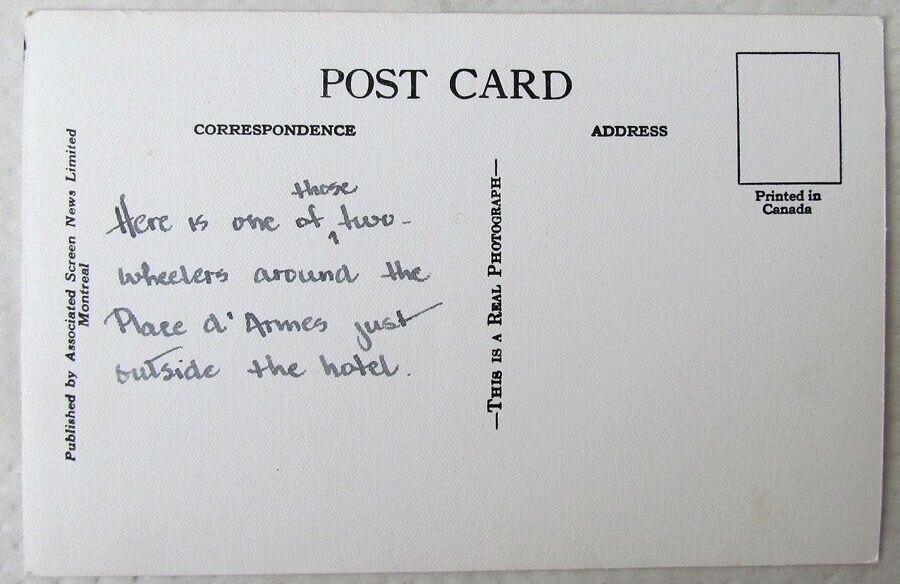 POST CARD
CORRESPONDENCE
ADDRESS
Printed in
Canada
Published by Associated Screen News Limited
Montreal
those
Here is one of ‸ two-
wheelers around the
Place d'Armes just
outside the hotel.
—THIS IS A REAL PHOTOGRAPH—